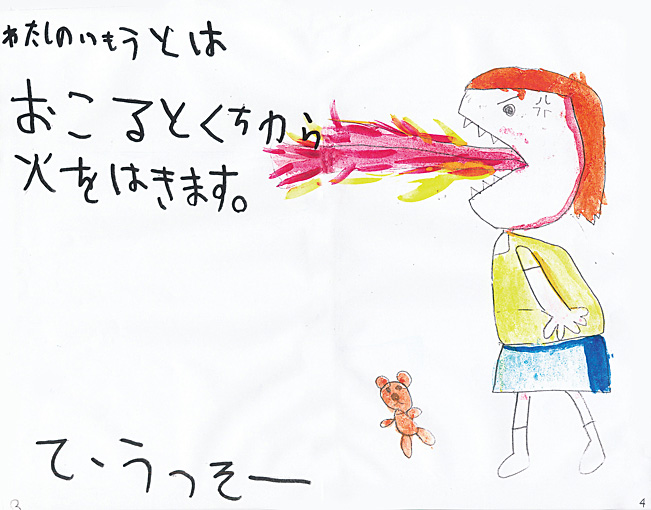 わたしのいもうとは
おこるとくちから
火をはきます。
て、うっそー
3
4